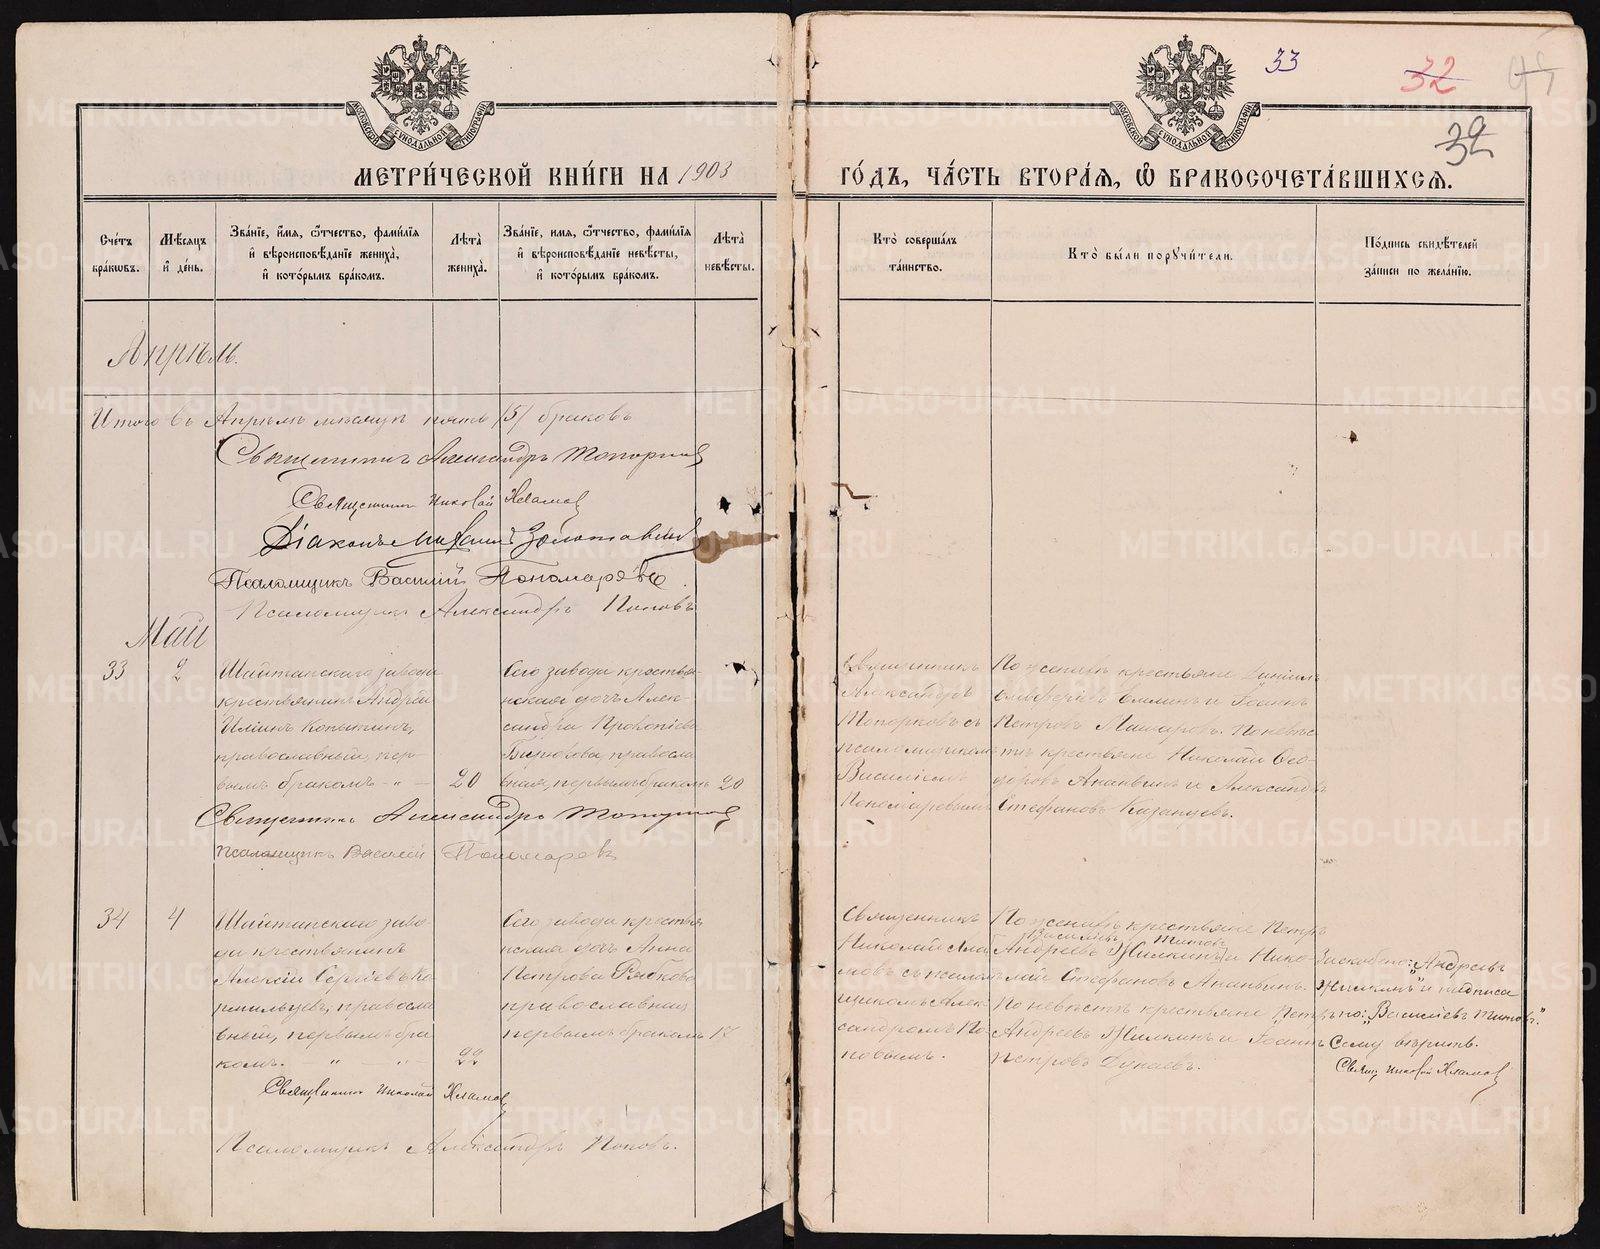 33
32
32
МЕТРИ́ЧЕСКОЙ КНИ́ГИ НА 1903 ГО́ДЪ, ЧА́СТЬ ВТОРА́Я, Ѽ БРАКОСОЧЕТА́ВШИХСЯ.
Сче́тъ бра́кѡвъ.
Мѣсяцъ и де́нь.
Зва́нїе, и́мя, ѻ҆́тчество, фами́лїя и҆ вѣроисповѣ́данїе жениха̀, и҆ кото́рымъ бра́комъ.
Лѣта̀ жениха̀.
Зва́нїе, и́мя, ѻ҆́тчество, фами́лїя и҆ вѣроисповѣ́данїе невѣ́сты, и҆ кото́рымъ бра́комъ.
Лѣта̀ невѣ́сты.
Кто̀ соверша́лъ та́инство.
Кто̀ бы́ли порꙋчи́тели.
По́дпись свидѣ́телей за́писи по жела́нїю.
Апрѣль.
Итого въ Апрѣлѣ мѣсяцѣ пять /5/ браковъ
Священникъ Александръ Топорков
Священникъ Николай Хламов
Діаконъ Михаилъ Золотавин
Псаломщикъ Василій Пономарёвъ
Псаломщикъ Александръ Поповъ
Май
33
2
Шайтанскаго завода
крестьянинъ Андрей
Ильинъ Копыткинъ,
православный, пер-
вымъ бракомъ - " -
20
Сего завода крестьян-
ская дочь Алек-
сандра Прокопіева
Бирюкова, правосла
вная, первымъ бракомъ
20
Священникъ
Александръ
Топорковъ съ
псаломщикомъ
Василіемъ
Пономаревымъ
По женихѣ крестьяне Даніилъ
Елисеевъ Емлинъ и Іоаннъ
Петровъ Макаровъ. По невѣс
тѣ крестьяне Николай Ѳео-
доровъ Ананьинъ и Александръ
Стефановъ Казанцевъ.
Священникъ Александръ Топорков
Псаломщикъ Василій Пономаревъ
34
4
Шайтанскаго заво-
да крестьянинъ
Алексій Сергіевъ Ко
рмильцевъ, правосла
вный, первымъ бра
комъ. " - " -
22
Сего завода крестья
нская дочь Анна
Петрова Рябкова
православная
первымъ бракомъ
17
Священникъ
Николай Хла
мовъ съ псалом
щикомъ Алек
сандромъ По-
повымъ.
По женихѣ крестьяне Петръ
Василіевъ Титовъ
Андреевъ Жилкинъ и Нико-
лай Стефановъ Ананьинъ.
По невѣстѣ крестьяне Петръ
Андреевъ Жилкинъ и Іоаннъ
Петровъ Дунаевъ.
Зачеркнуто: „Андреевъ
Жилкинъ" и надписа
но: „Василіевъ Титовъ."
Сему вѣрить.
Свящ. Николай Хламов
Священникъ Николай Хламов
Псаломщикъ Александръ Поповъ.
METRIKI.GASO-URAL.RU